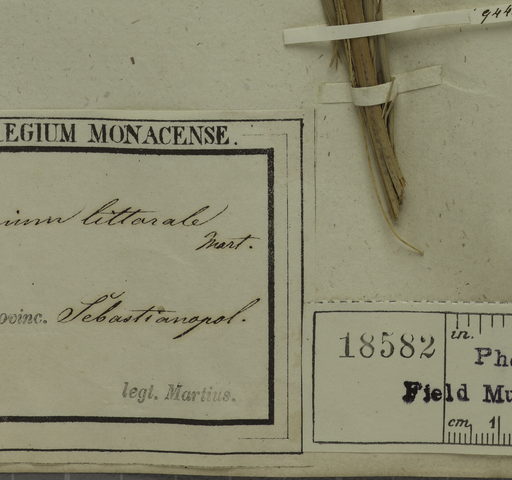 944
EGIUM MONACENSE.
ium littorale
Mart.
ovinc. Sebastianopol.
legt. Martius.
18582
in.
Pho
Field Mu
cm 1